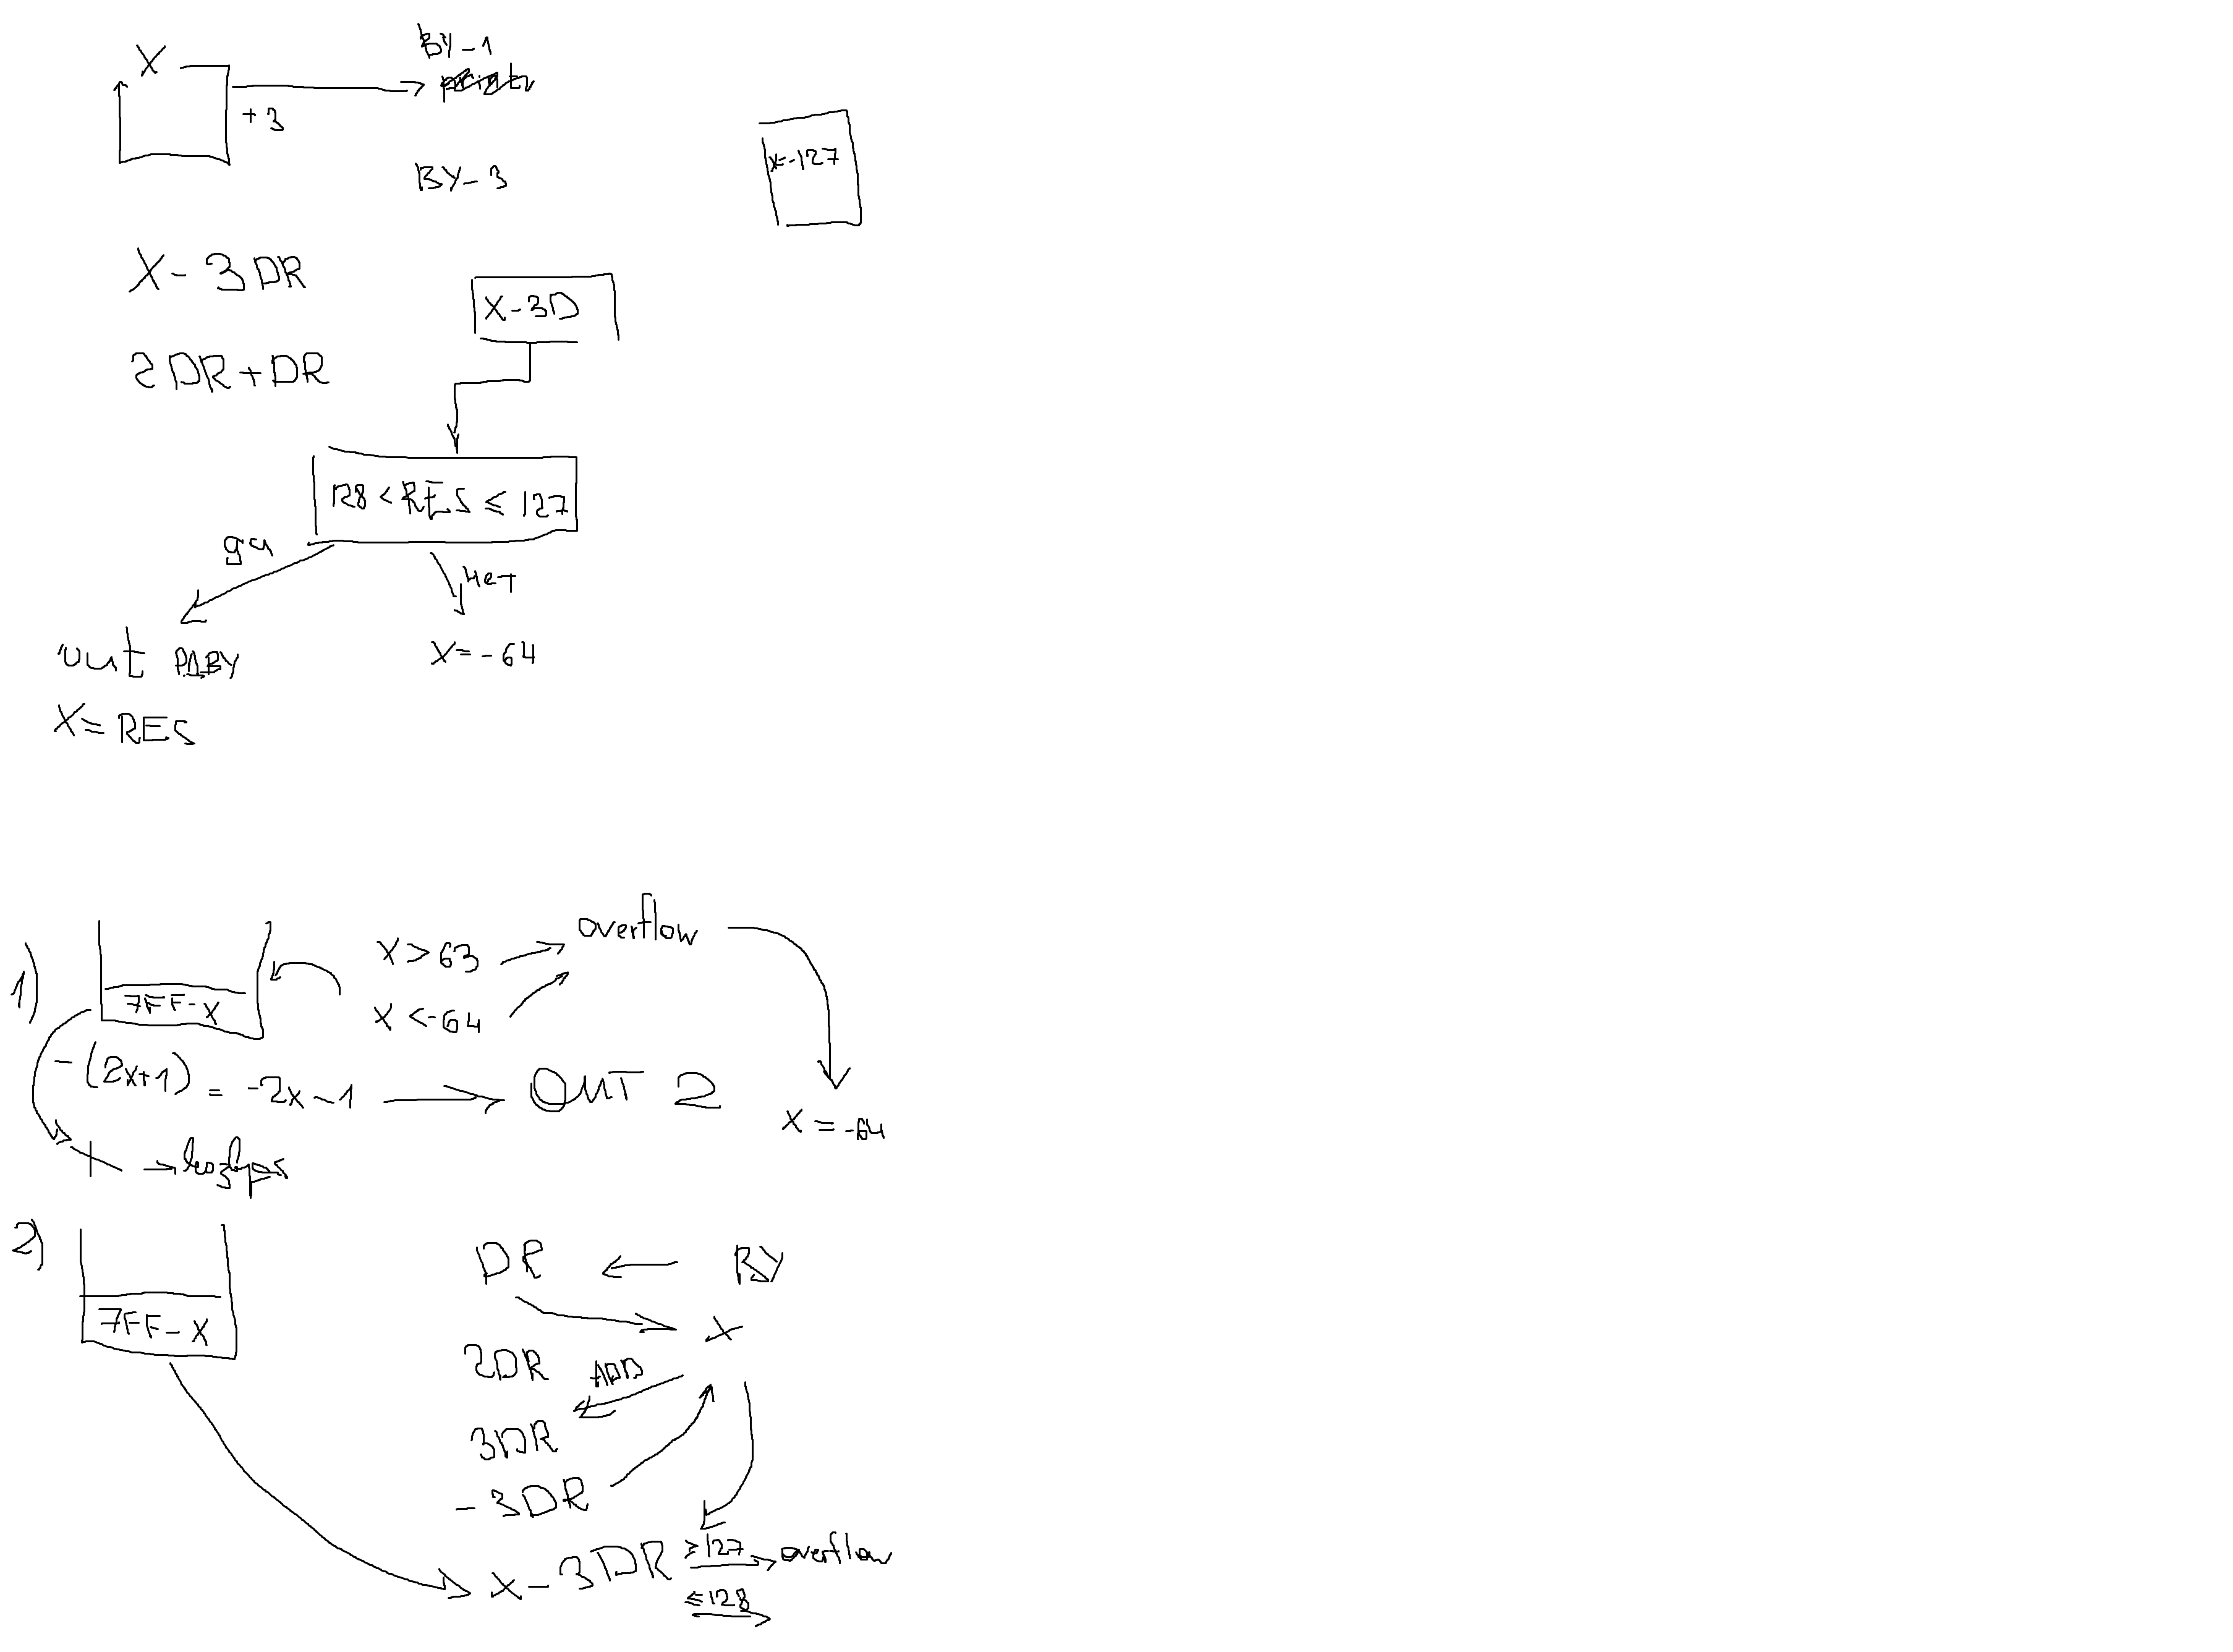 X
ВУ-1
+3
ВУ-3
X=-127
X-3DR
X-3D
2DR+DR
128 < RES ≤ 127
да
нет
out
X=-64
X=RES
1)
7FF-X
X>63
X<-64
overflow
-(2x+1) = -2x-1
OUT 2
X=-64
+ → возврат
2)
7FF-X
DR
ВУ
+
2DR
ADD
3DR
-3DR
X-3DR
≥127
overflow
≤128